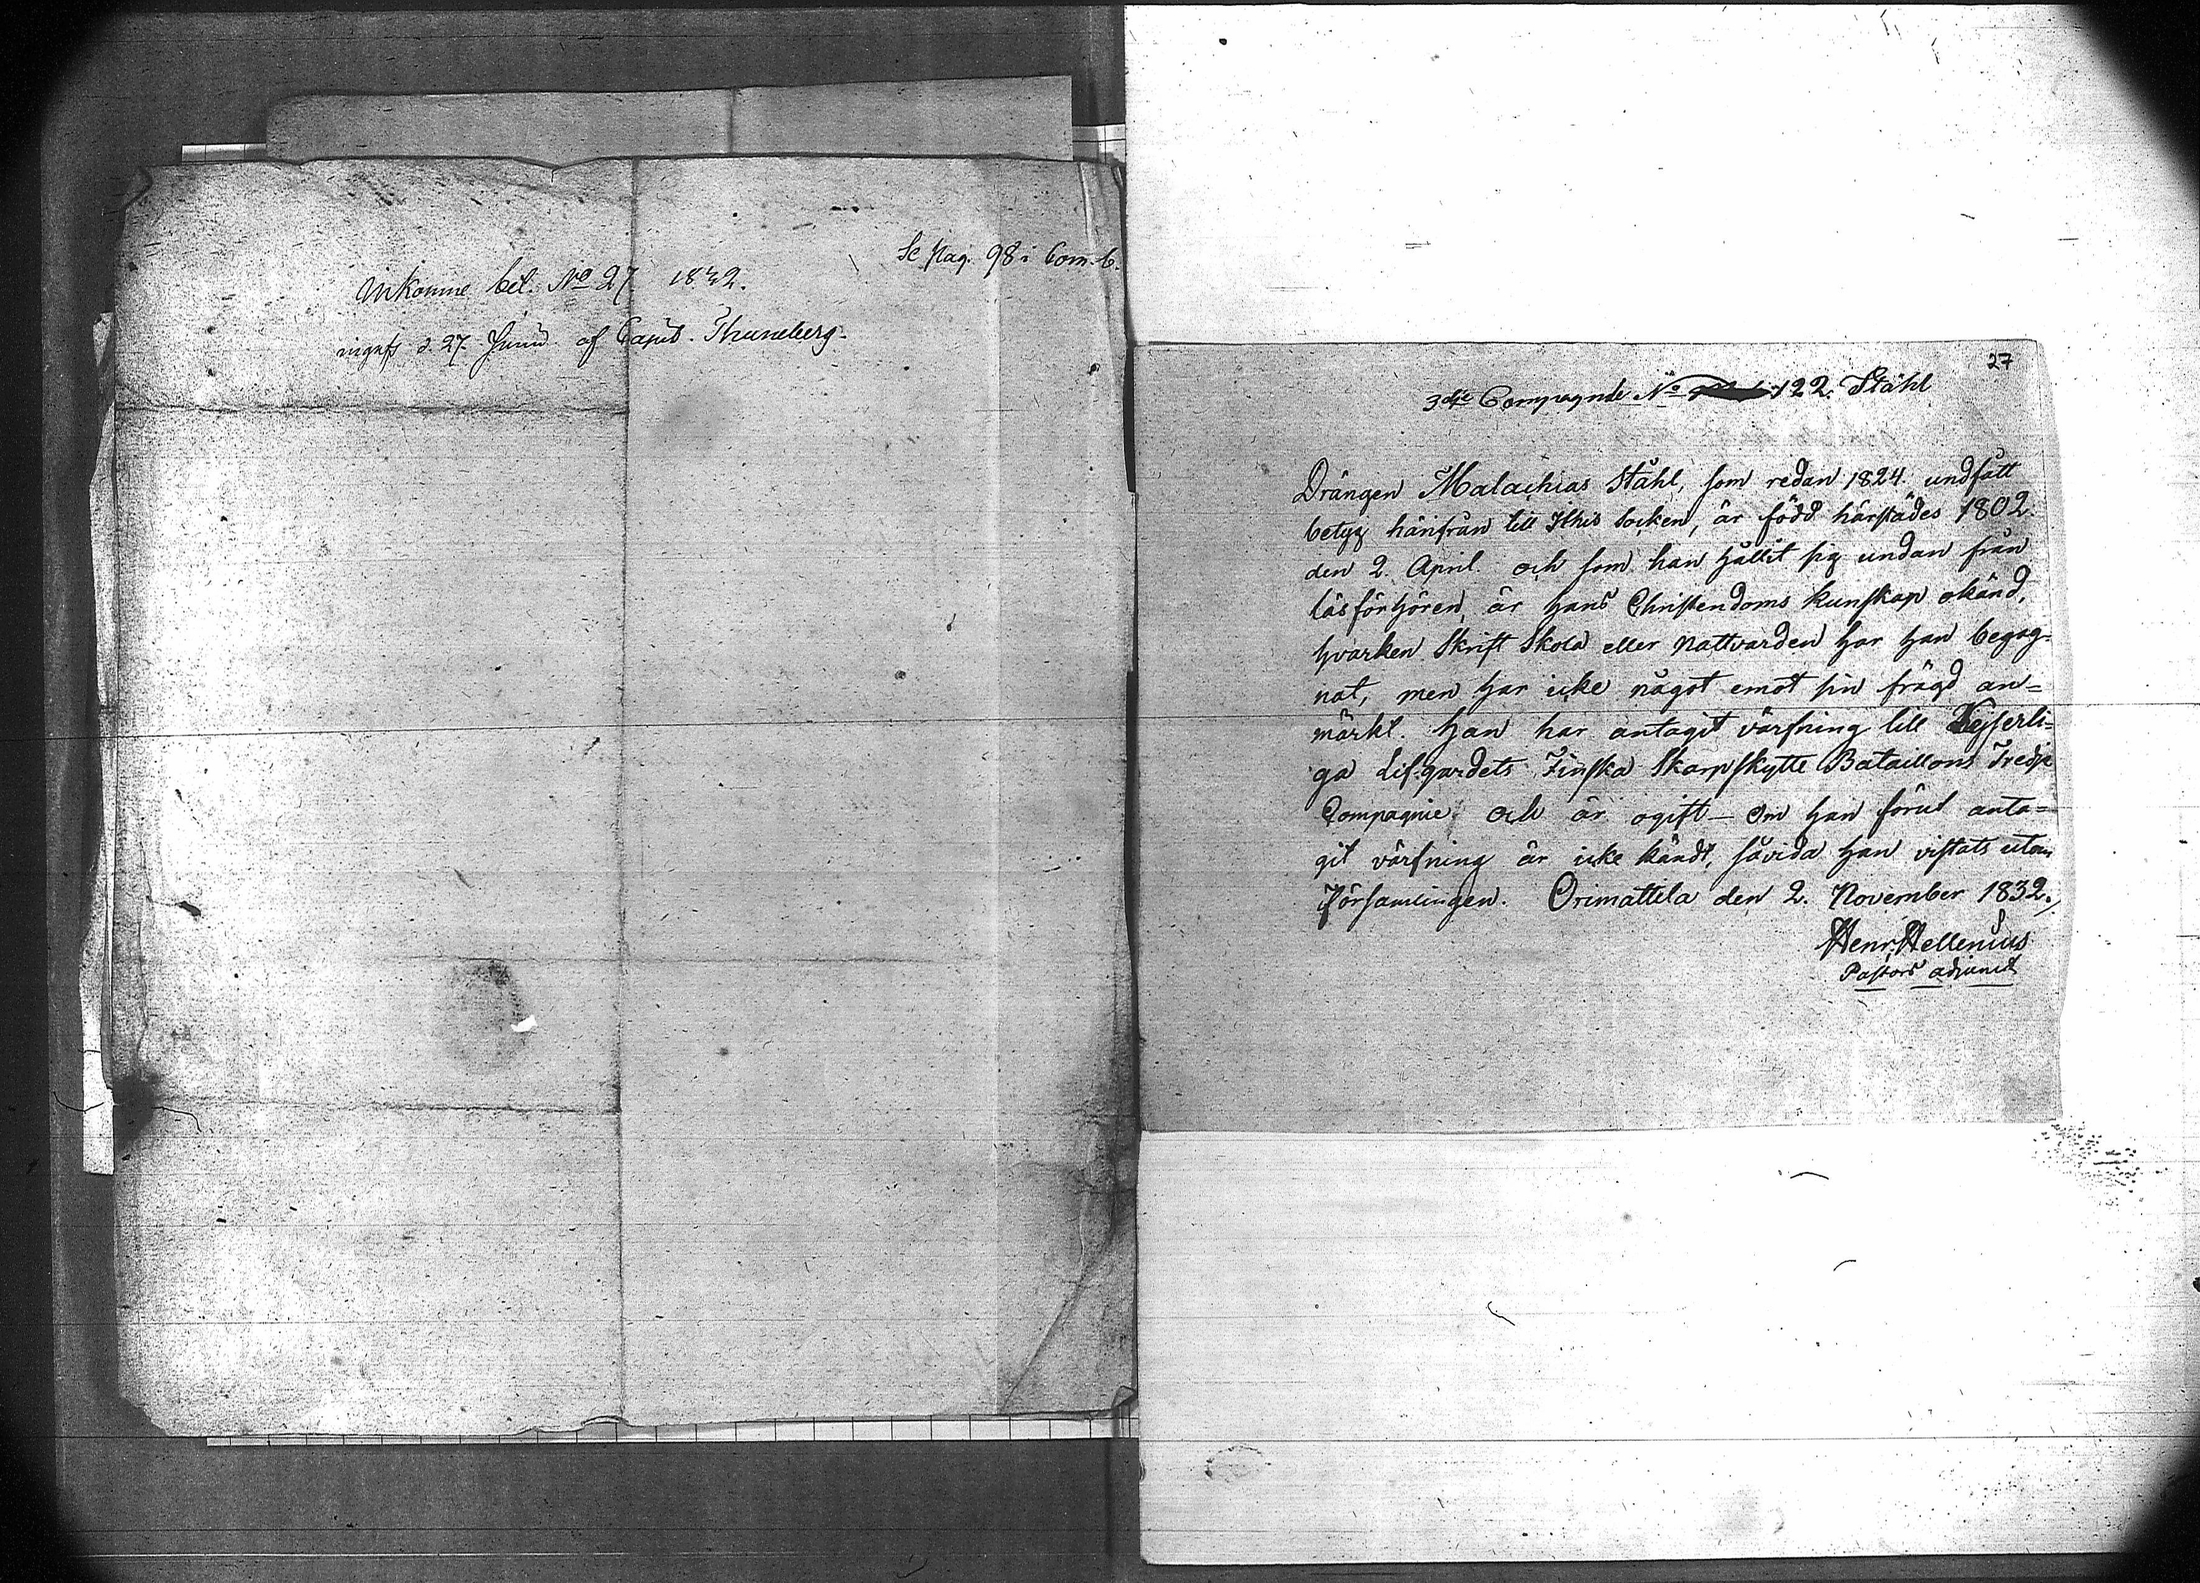 Se pag. 98 i Com. b.
Inkomne bet. No 27 1832.
ingaf d. 27 Junii af Capit. Thuneberg.
27
3dje Compagnie No 122. Ståhl
Drängen Malachias Ståhl, som redan 1824 undfått
betyg härifrån till Ithis Socken, är född härstädes 1802.
den 2. April och som han hållit sig undan från
läsförhören, är hans Christendoms kunskap okänd,
hvarken Skrift Skola eller Nattvarden har han begag-
nat, men har icke något emot sin frägd an=
märkt. Han har antagit värfning till Kejserli=
ga Lif-gardets Finska Skarpskytte Bataillons Tredje
Compagnie och är ogift – Om han förut anta=
git värfning är icke kändt, såvida han vistats utom
Församlingen. Orimattila den 2. November 1832./.
Henr. Hellenius
Pastors adjunct